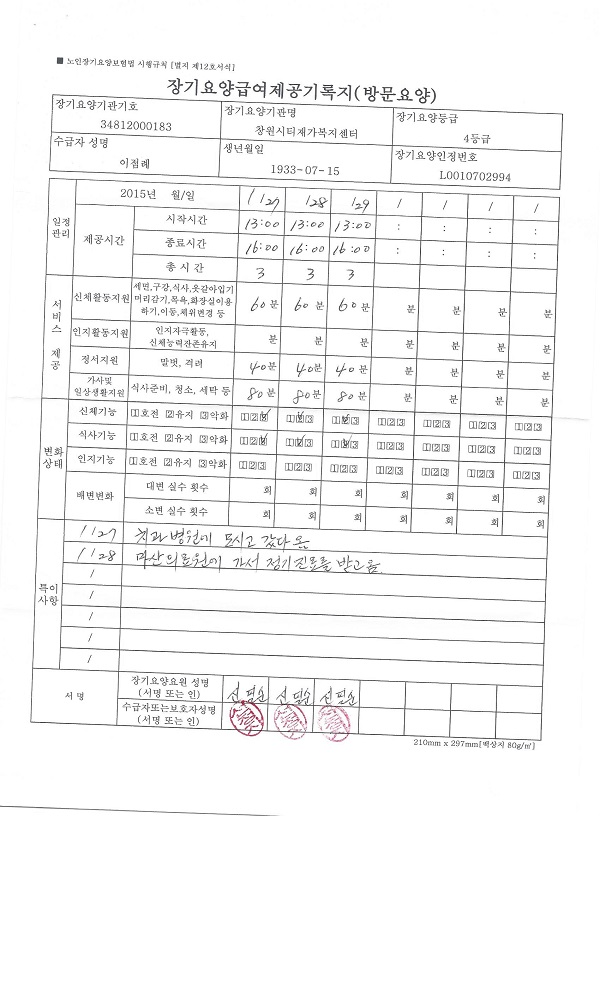 ■ 노인장기요양보험법 시행규칙 [별지 제12호서식]
장기요양급여제공기록지(방문요양)
장기요양기관기호 장기요양기관명 장기요양등급
34812000183 창원시티재가복지센터 4등급
수급자 성명 생년월일 장기요양인정번호
이점례 1933-07-15 L0010702994
일정관리 2015년 월/일 1/27 1/28 1/29 / / / /
제공시간 시작시간 13:00 13:00 13:00 : : : :
종료시간 16:00 16:00 16:00 : : : :
총 시 간 3 3 3
서비스 제공 신체활동지원 세면,구강,식사,옷갈아입기
머리감기,목욕,화장실이용
하기,이동,체위변경 등 60분 60분 60분 분 분 분 분
인지활동지원 인지자극활동,
신체능력잔존유지 분 분 분 분 분 분 분
정서지원 말벗, 격려 40분 40분 40분 분 분 분 분
가사및
일상생활지원 식사준비, 청소, 세탁 등 80분 80분 80분 분 분 분 분
변화상태 신체기능 1호전 2유지 3악화 123 123 123 123 123 123 123
식사기능 1호전 2유지 3악화 123 123 123 123 123 123 123
인지기능 1호전 2유지 3악화 123 123 123 123 123 123 123
배변변화 대변 실수 횟수 회 회 회 회 회 회 회
소변 실수 횟수 회 회 회 회 회 회 회
특이사항 1/27 치과병원에 모시고 갔다옴
1/28 마산의료원에 가서 정기진료를 받고옴
/
/
/
/
서 명 장기요양요원 성명
(서명 또는 인) 신필순 신필순 신필순
수급자또는보호자성명
(서명 또는 인)
210mm x 297mm[백상지 80g/㎡]